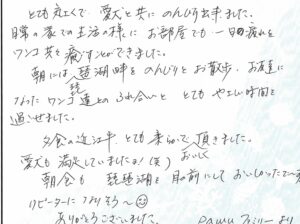 とても広くて、愛犬と共にのんびり出来ました。
日常の家での生活の様にお部屋でも一日の疲れを
ワンコ共々癒すことができました。
朝には琵琶湖畔をのんびりとお散歩、お友達に
なったワンコ達とのふれ合いととてもやさしい時間を
過ごせました。
夕食の近江牛とても柔らかでおいしく頂きました。
愛犬も満足していましたよ!(笑)
朝食も琵琶湖を目の前にしておいしかったで〜す
リピーターになりそう〜
ありがとうございました。